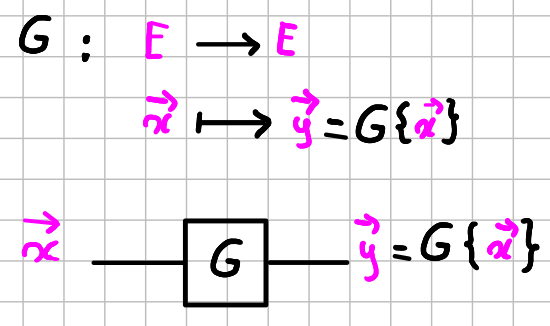 G : E ⟶ E
x⃗ ⟼ y⃗ = G{x⃗}
x⃗ G y⃗ = G{x⃗}